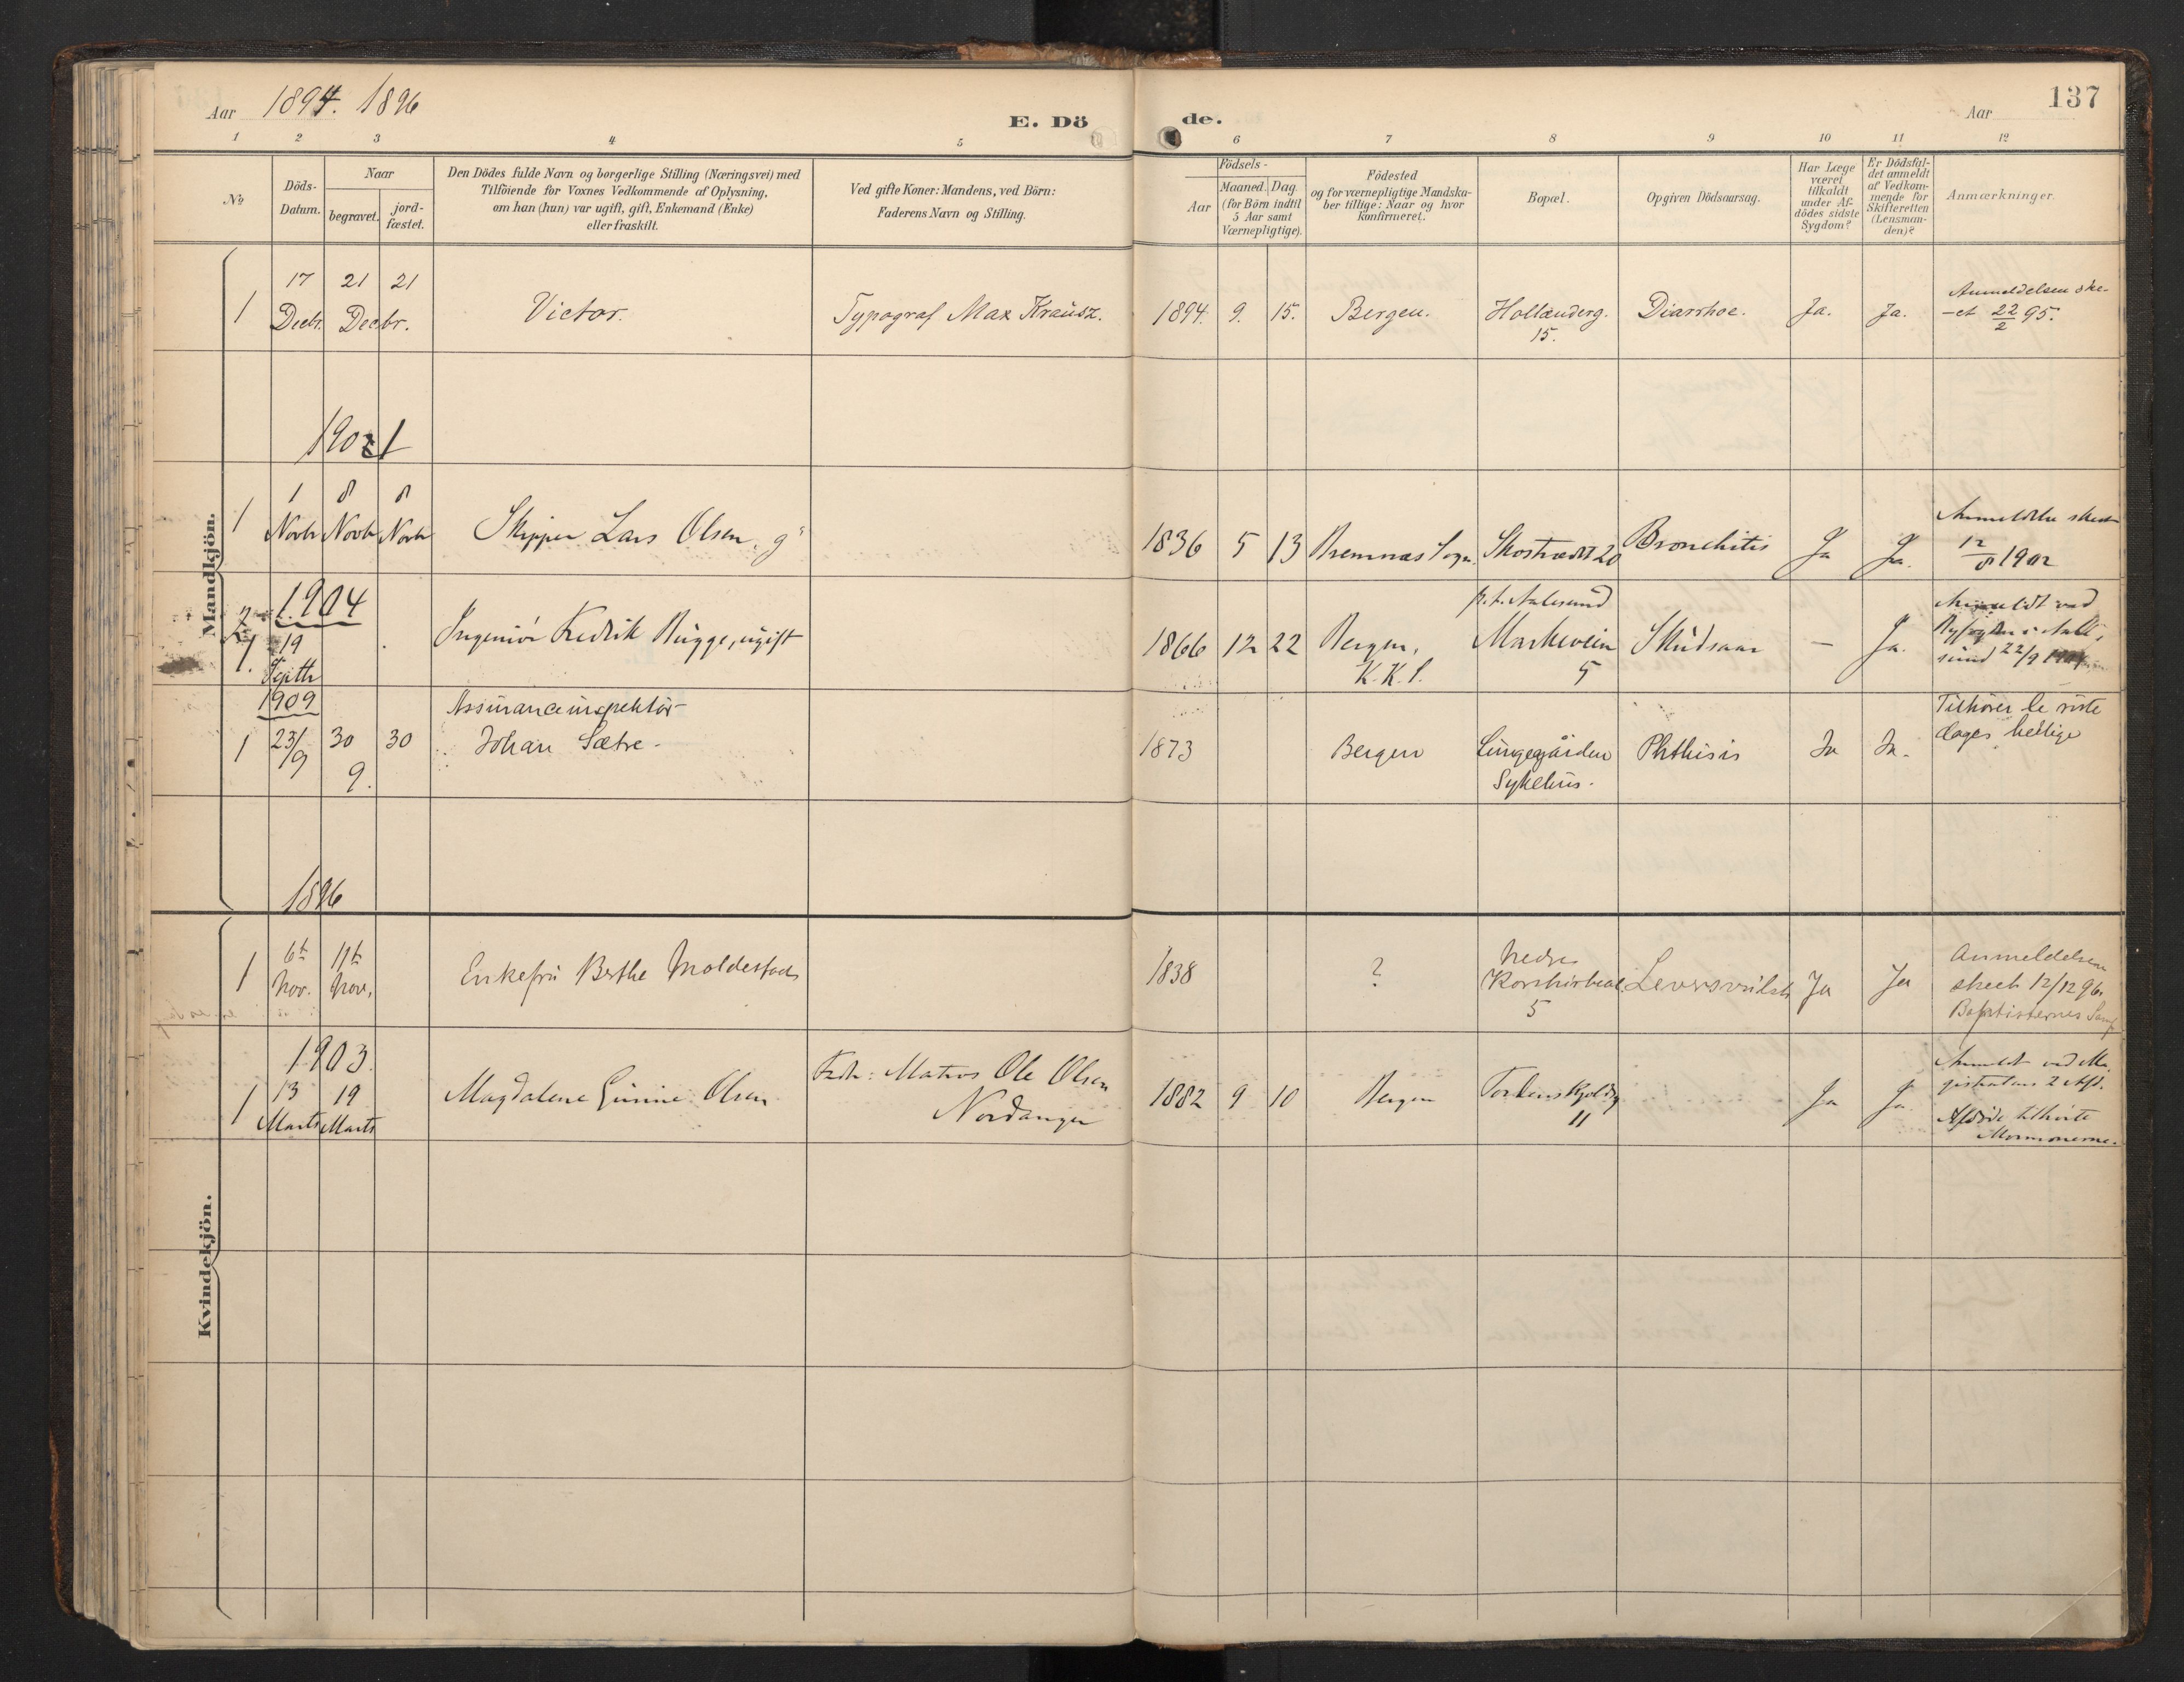 Aar 1894. 1896
E. Dö
de.
Aar
137
1 2 3 4 5 6 7 8 9 10 11 12
No
Döds-
Datum.
Naar
begravet.
jord-
fæstet.
Den Dödes fulde Navn og borgerlige Stilling (Næringsvei) med
Tilföiende for Voxnes Vedkommende af Oplysning,
om han (hun) var ugift, gift, Enkemand (Enke)
eller fraskilt.
Ved gifte Koner: Mandens, ved Börn:
Faderens Navn og Stilling.
Födsels-
Aar
Maaned. Dag.
(for Börn indtil
5 Aar samt
Værnepligtige).
Födested
og for værnepligtige Mandska-
ber tillige: Naar og hvor
konfirmeret.
Bopæl.
Opgiven Dödsaarsag.
Har Læge
været
tilkaldt
under Af-
dödes sidste
Sygdom?
Er Dödsfal-
det anmeldt
af Vedkom-
mende for
Skifteretten
(Lensman-
den)?
Anmærkninger.
Mandkjön.
17 21 21
1 Decbr. Decbr. Victor. Typograf Max Krausz. 1894. 9. 15. Bergen. Hollænderg. 15. Diarrhoe. Ja. Ja. Anmeldelsen ske-
-et 22/2 95.
1901
1 8 8
1 Novbr Novbr Novbr Skipper Lars Olsen, g 1836 5 13 Bremnæs Sogn. Skostrædet 20 Bronchitis Ja Ja.
12/8 1902
1904
1. 19
Septbr
Ingeniör Fredrik Brügge, ugift 1866 12 22 Bergen,
K.K.S.
p.t. Aalesund
Markeveien
5
Skudsaar — Ja. Anmeldt ved
Byfogden i Aale-
sund 22/9
1909
1 23/9 30 30
9.
Assuranceinspektör
Johan Sætre.
1873 Bergen Lungegården
Sykehus.
Phthisis Ja Ja.
Tilhører de siste
dages hellige
1896
Kvindekjön.
1 6te 11te
Nov. Nov.
Enkefru Berthe Moldestad 1838 ? Nedre
Korskirkealm.
5
Ja Ja Anmeldelsen
skeet 12/12 96.
Baptisternes Samf
1903.
1 13 19
Marts Marts
Magdalene Gurine Olsen Fader: Matros Ole Olsen
Nordanger
1882 9 10 Bergen Tordenskjoldsg
11
Ja Ja. Anmeldt ved Ma-
gistratens 2 Afd.
Afdöde tilhörte
Mormonerne.